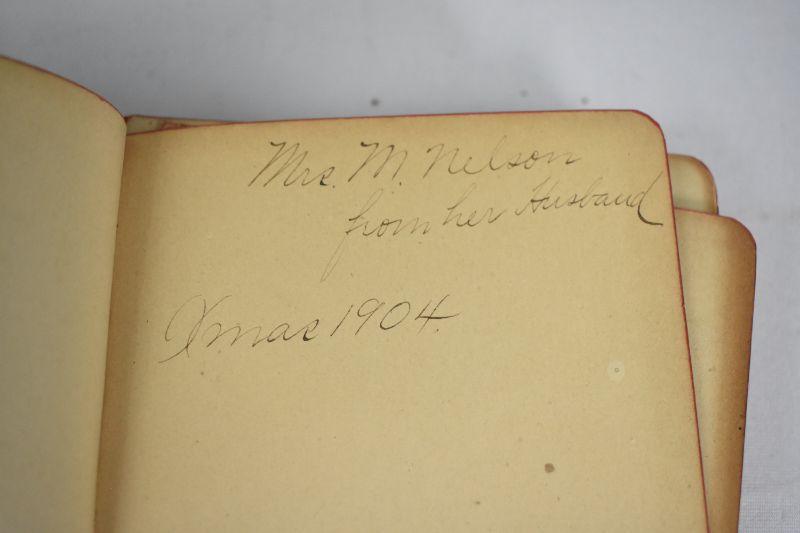 Mrs. M. Nelson
from her Husband
Xmas 1904.